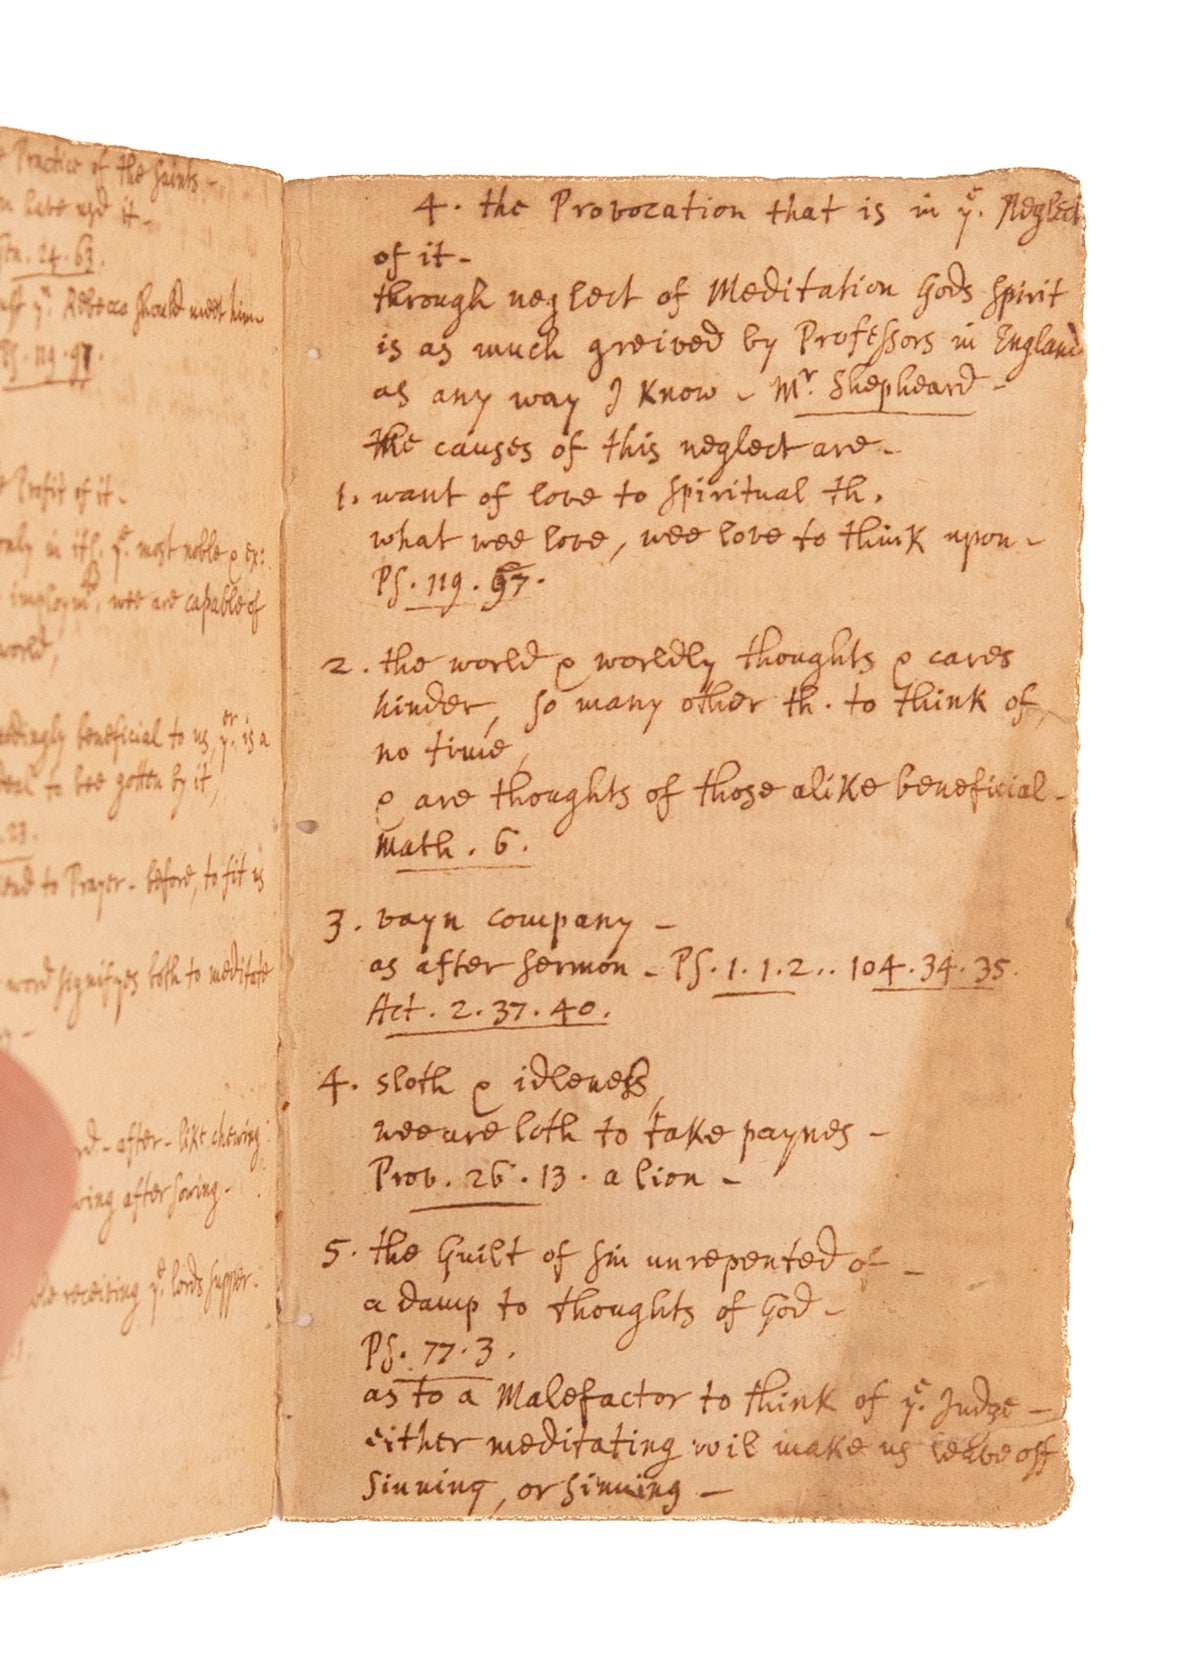 Practice of the Saints -
have usd it -
24. 63.
yt. Rebecca should meet him
Ps. 119. 97.
Profit of it -
only in itf. ye. most noble & ex:
imploymt, wee are capable of
world,
beneficial to us, yer. is a
to bee gotten by it,
23.
to Prayer - before, to fit us
word signifyes both to meditate
- after - like chewing
after sowing -
receiving ye. lords supper -
4. the Provocation that is in ye. Neglect
of it -
through neglect of Meditation Gods Spirit
is as much greived by Professors in England
as any way I know - Mr. Shepheard -
the causes of this neglect are -
1. want of love to spiritual th.
what wee love, wee love to think upon -
Ps. 119. 97.
2. the world & worldly thoughts & cares
hinder, so many other th. to think of,
no time,
& are thoughts of those alike beneficial -
Math. 6.
3. vayn company -
as after sermon - Ps. 1. 1. 2.. 104. 34. 35.
Act. 2. 37. 40.
4. sloth & idleness,
wee are loth to take paynes -
Prov. 26. 13. a lion -
5. the Guilt of sin unrepented of -
a damp to thoughts of God -
Ps. 77. 3.
as to a Malefactor to think of ye. Judge -
either meditating wil make us leave off
sinning, or sinning -